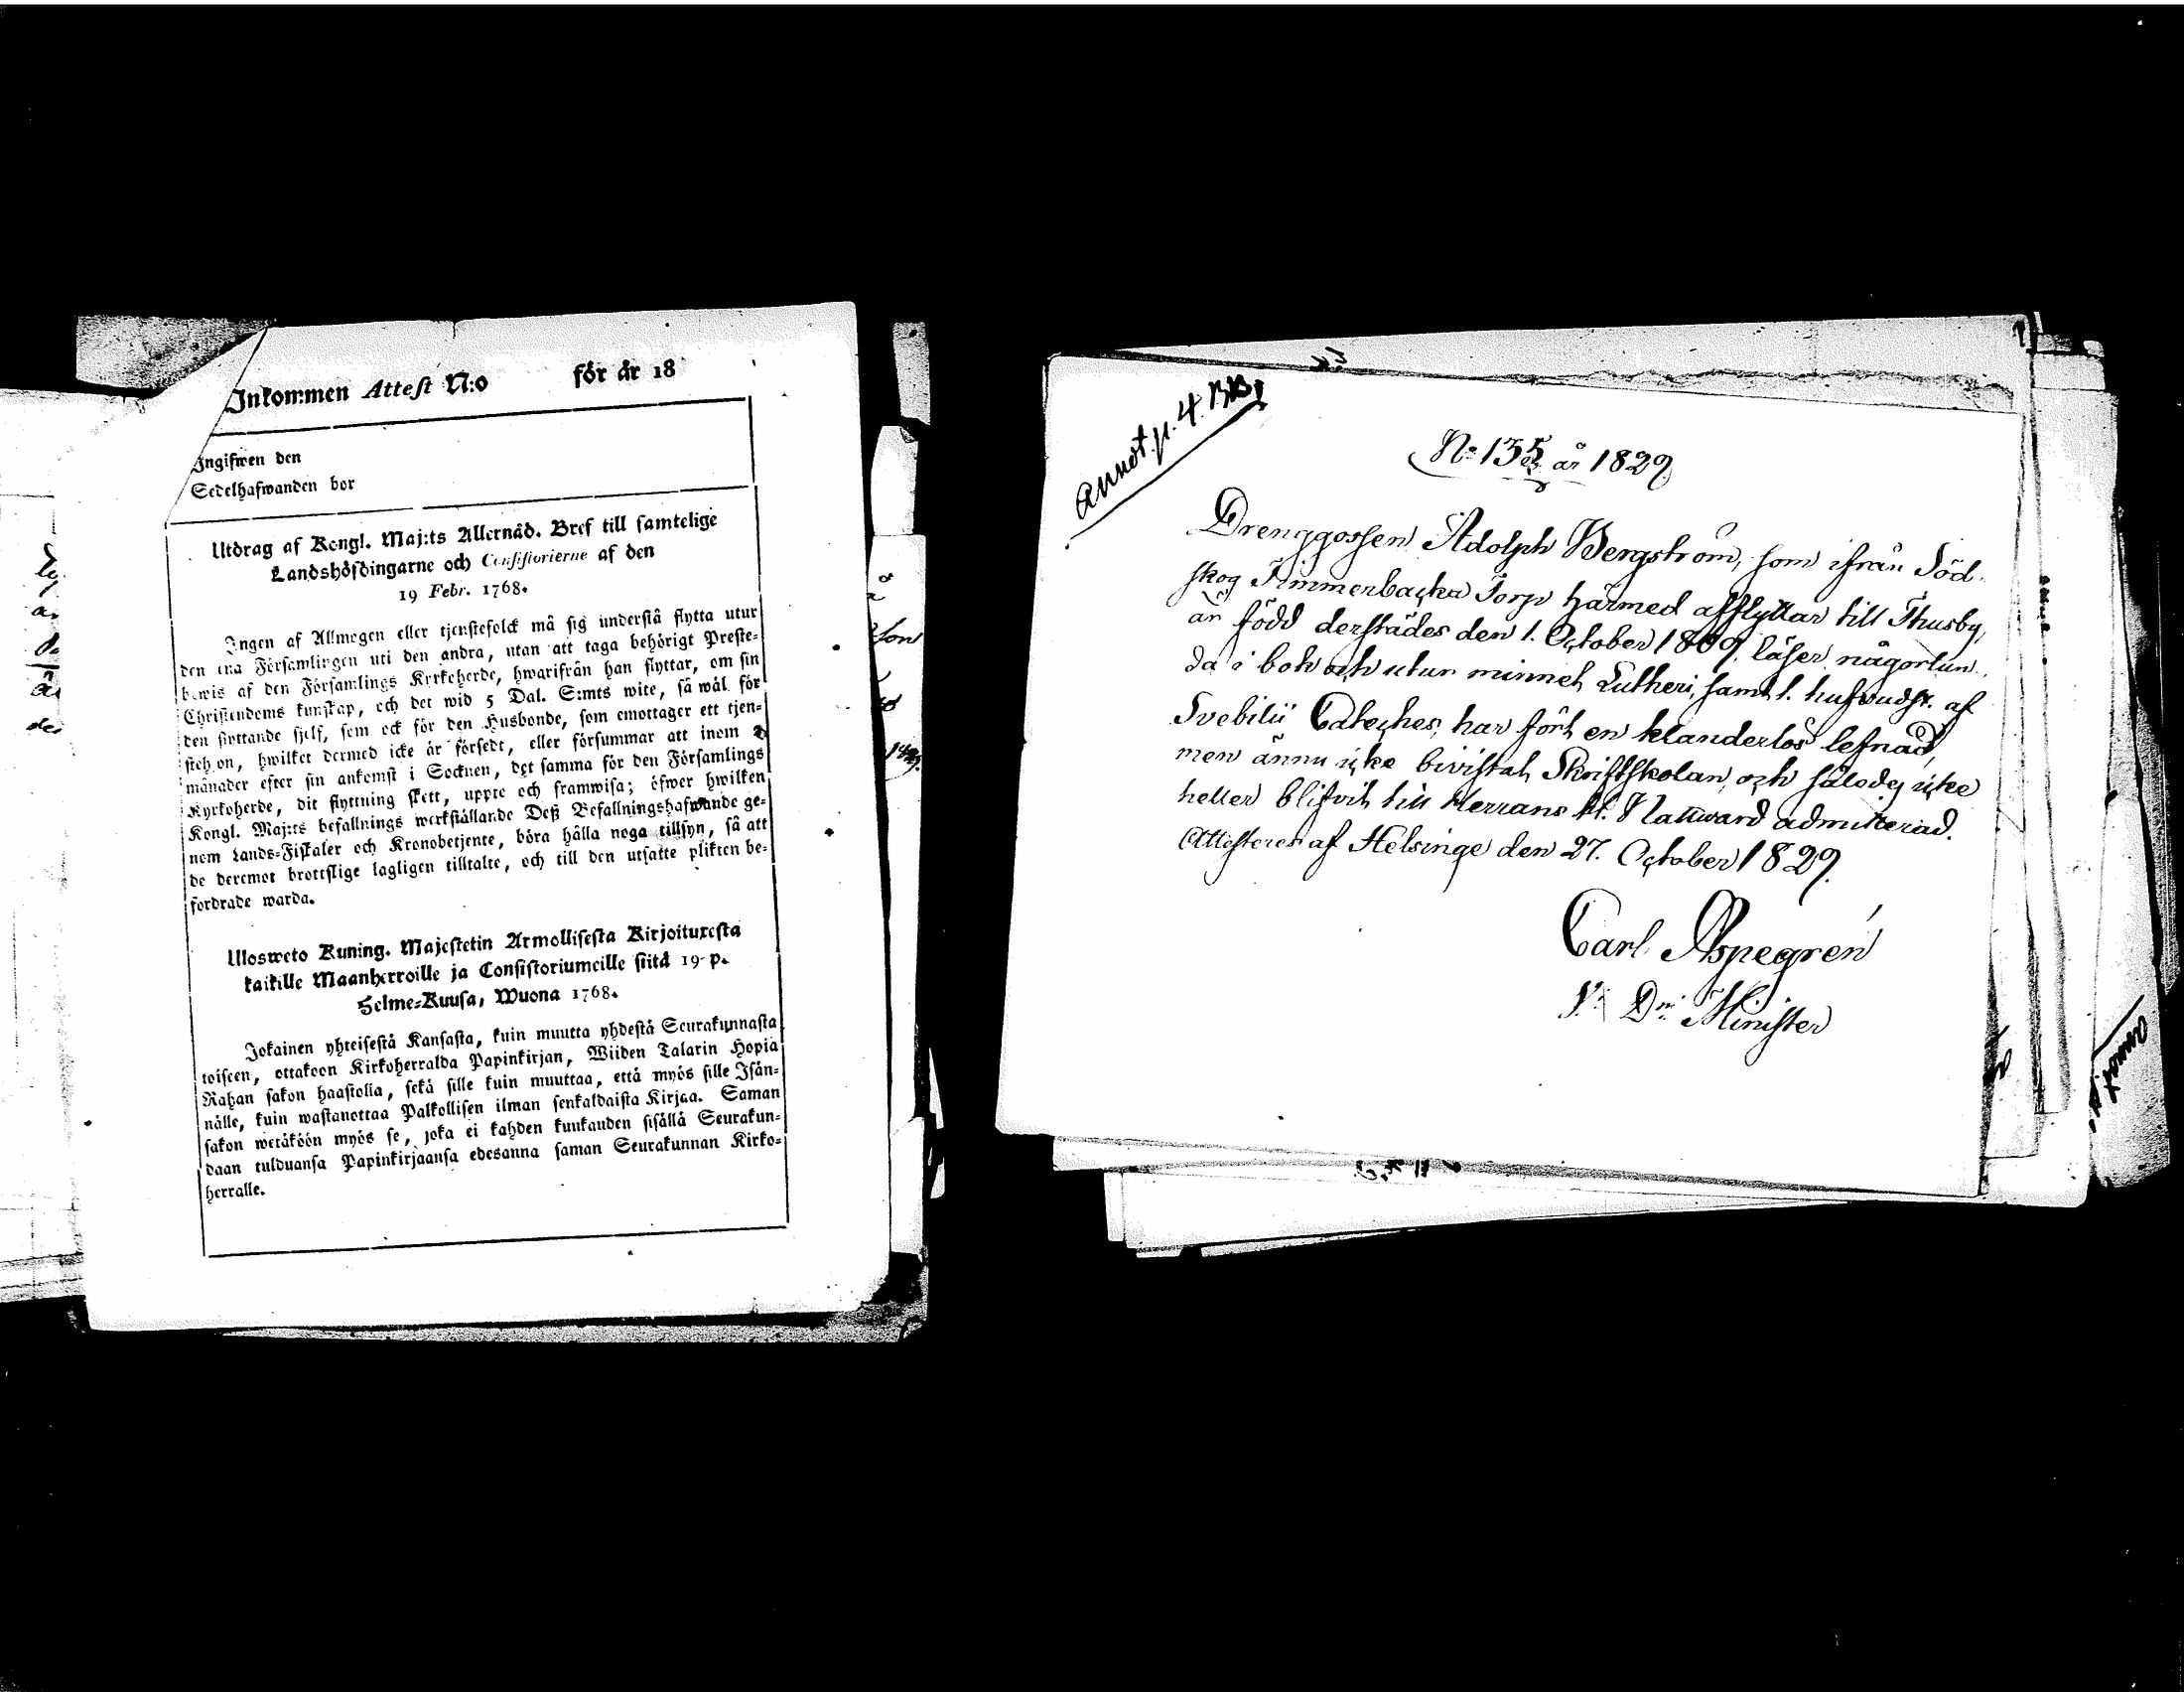 Inkommen Attest N:o för år 18
Ingifwen den
Sedelhafwanden bor
Utdrag af Kongl. Maj:ts Allernåd. Bref till samtelige
Landshöfdingarne och Consistorierne af den
19 Febr. 1768.
Ingen af Allmogen eller tjenstefolck må sig understå flytta utur
den ena Församlingen uti den andra, utan att taga behörigt Preste-
bewis af den Församlings Kyrkoherde, hwarifrån han flyttar, om sin
Christendoms kunskap, och det wid 5 Dal. S:mts wite, så wäl för
den flyttande sjelf, som ock för den Husbonde, som emottager ett tjen-
stehjon, hwilket dermed icke är försedt, eller försummar att inom 2
månader efter sin ankomst i Socknen, det samma för den Församlings
Kyrkoherde, dit flyttning skett, uppte och framwisa; öfwer hwilken
Kongl. Maj:ts befallnings werkställande Deß Befallningshafwande ge-
nom Lands-Fiskaler och Kronobetjente, böra hålla noga tillsyn, så att
de deremot brottslige lagligen tilltalte, och till den utsatte plikten be-
fordrade warda.
Ulosweto Kuning. Majestetin Armollisesta Kirjoituxesta
kaikille Maanherroille ja Consistoriumeille siitä 19 p.
Helme-Kuusa, Wuona 1768.
Jokainen yhteisestä Kansasta, kuin muutta yhdestä Seurakunnasta
toiseen, ottakoon Kirkoherralda Papinkirjan, Wiiden Talarin Hopia
Rahan sakon haastolla, sekä sille kuin muuttaa, että myös sille Isän-
nälle, kuin wastanottaa Palkollisen ilman senkaldaista Kirjaa. Saman
sakon wetäköön myös se, joka ei kahden kuukauden sisällä Seurakun-
daan tulduansa Papinkirjaansa edesanna saman Seurakunnan Kirko-
herralle.
annot. p. 4.
N:o 135 år 1829
Drenggossen Adolph Bergström, som ifrån Söd-
skog Timmerbacka Torp härmed afflyttar till Thusby,
är född derstädes den 1. October 1809, läser någorlun-
da i bok och utur minnet Lutheri, samt 1. hufvudst. af
Svebilii Cateches, har fört en klanderlös lefnad,
men ännu icke bivistat Skriftskolan, och således icke
heller blifvit till Herrans H. Nattward admitterad.
Attesteres af Helsinge den 27. October 1829.
Carl Aspegren
V. Dni Minister